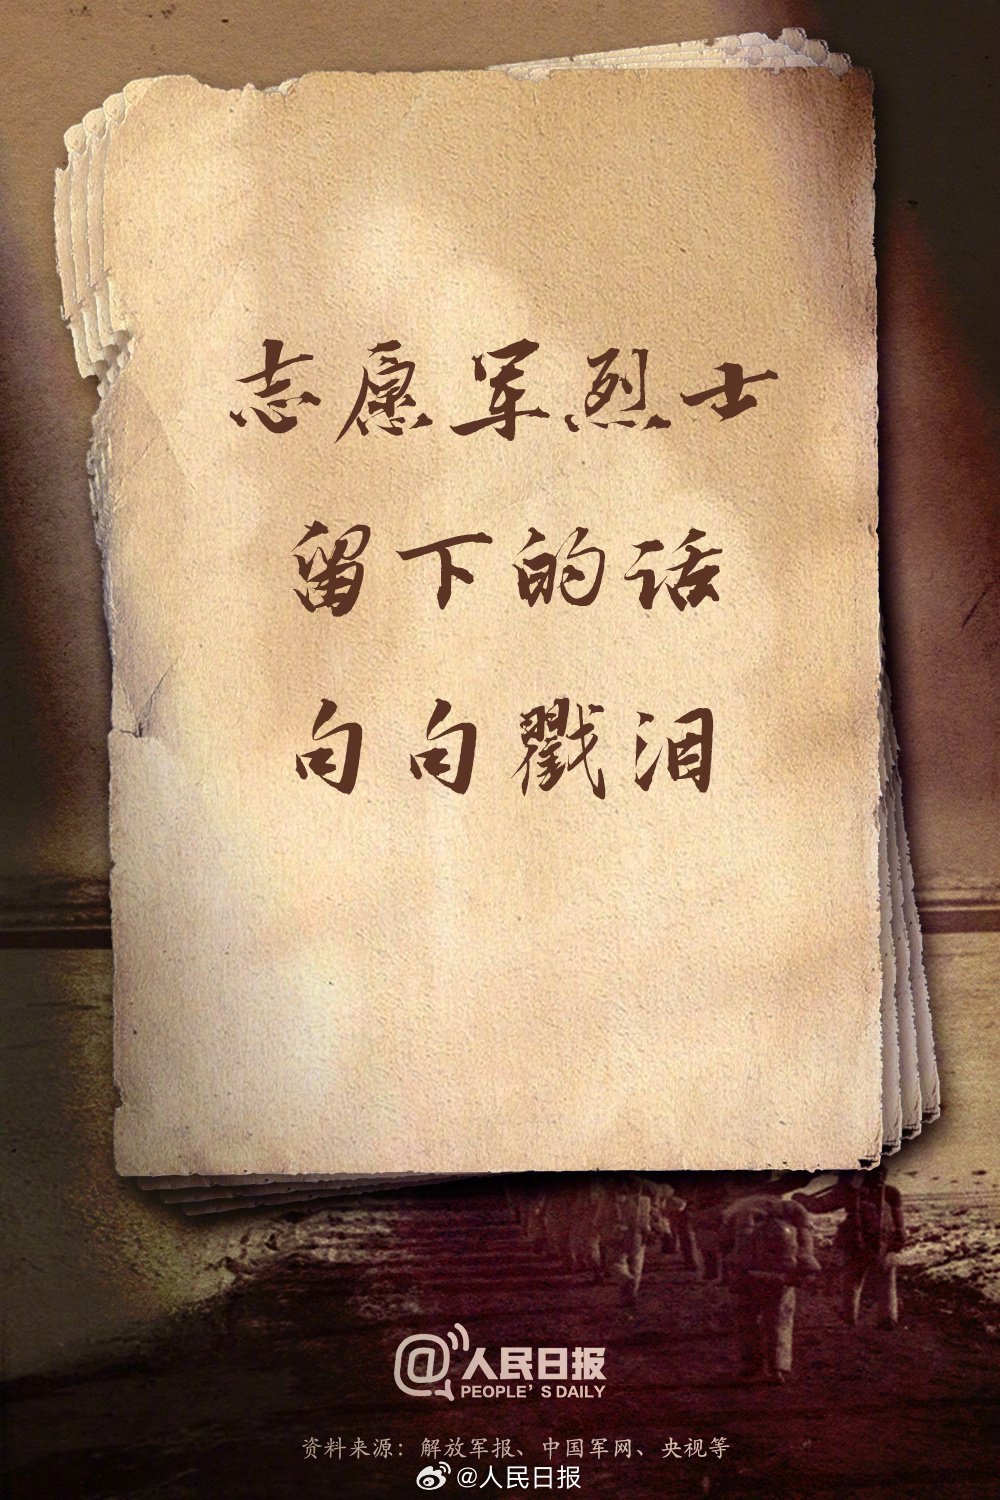 志愿军烈士
留下的话
句句戳泪
@人民日报
PEOPLE'S DAILY
资料来源：解放军报、中国军网、央视等
@人民日报